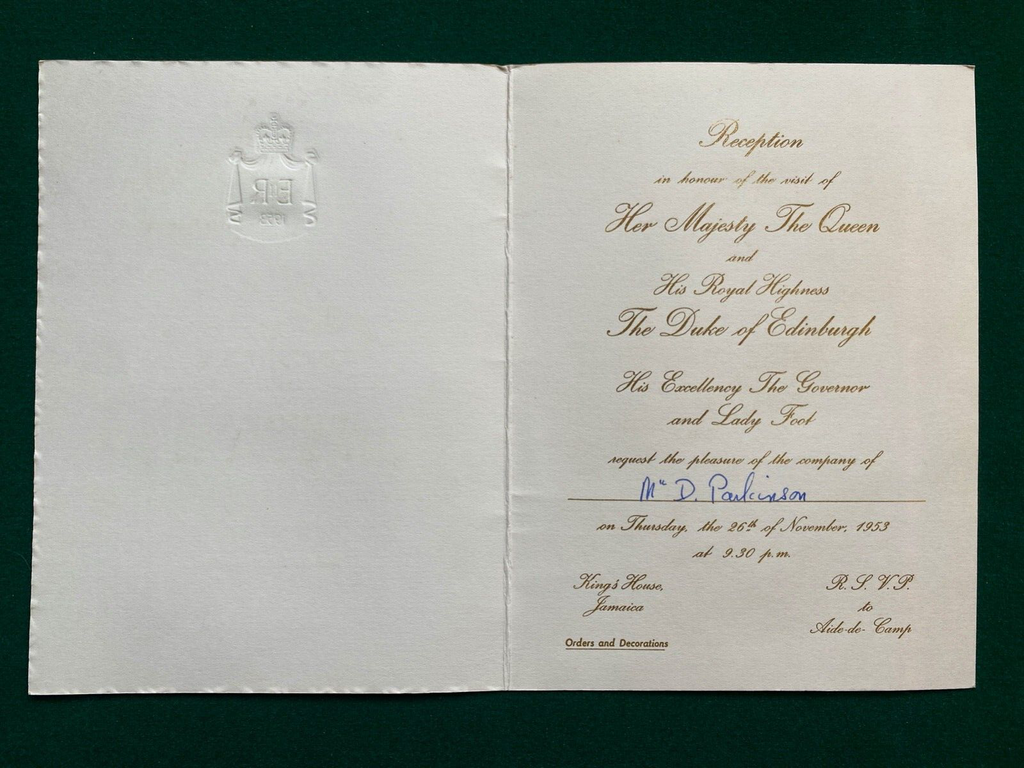 E R
1953
Reception
in honour of the visit of
Her Majesty The Queen
and
His Royal Highness
The Duke of Edinburgh
His Excellency The Governor
and Lady Foot
request the pleasure of the company of
Mr D. Parkinson
on Thursday, the 26th of November, 1953
at 9.30 p.m.
King's House,
Jamaica
R. S. V. P.
to
Aide-de-Camp
Orders and Decorations